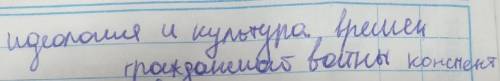 идеология и культура времен
гражданской войны конспект